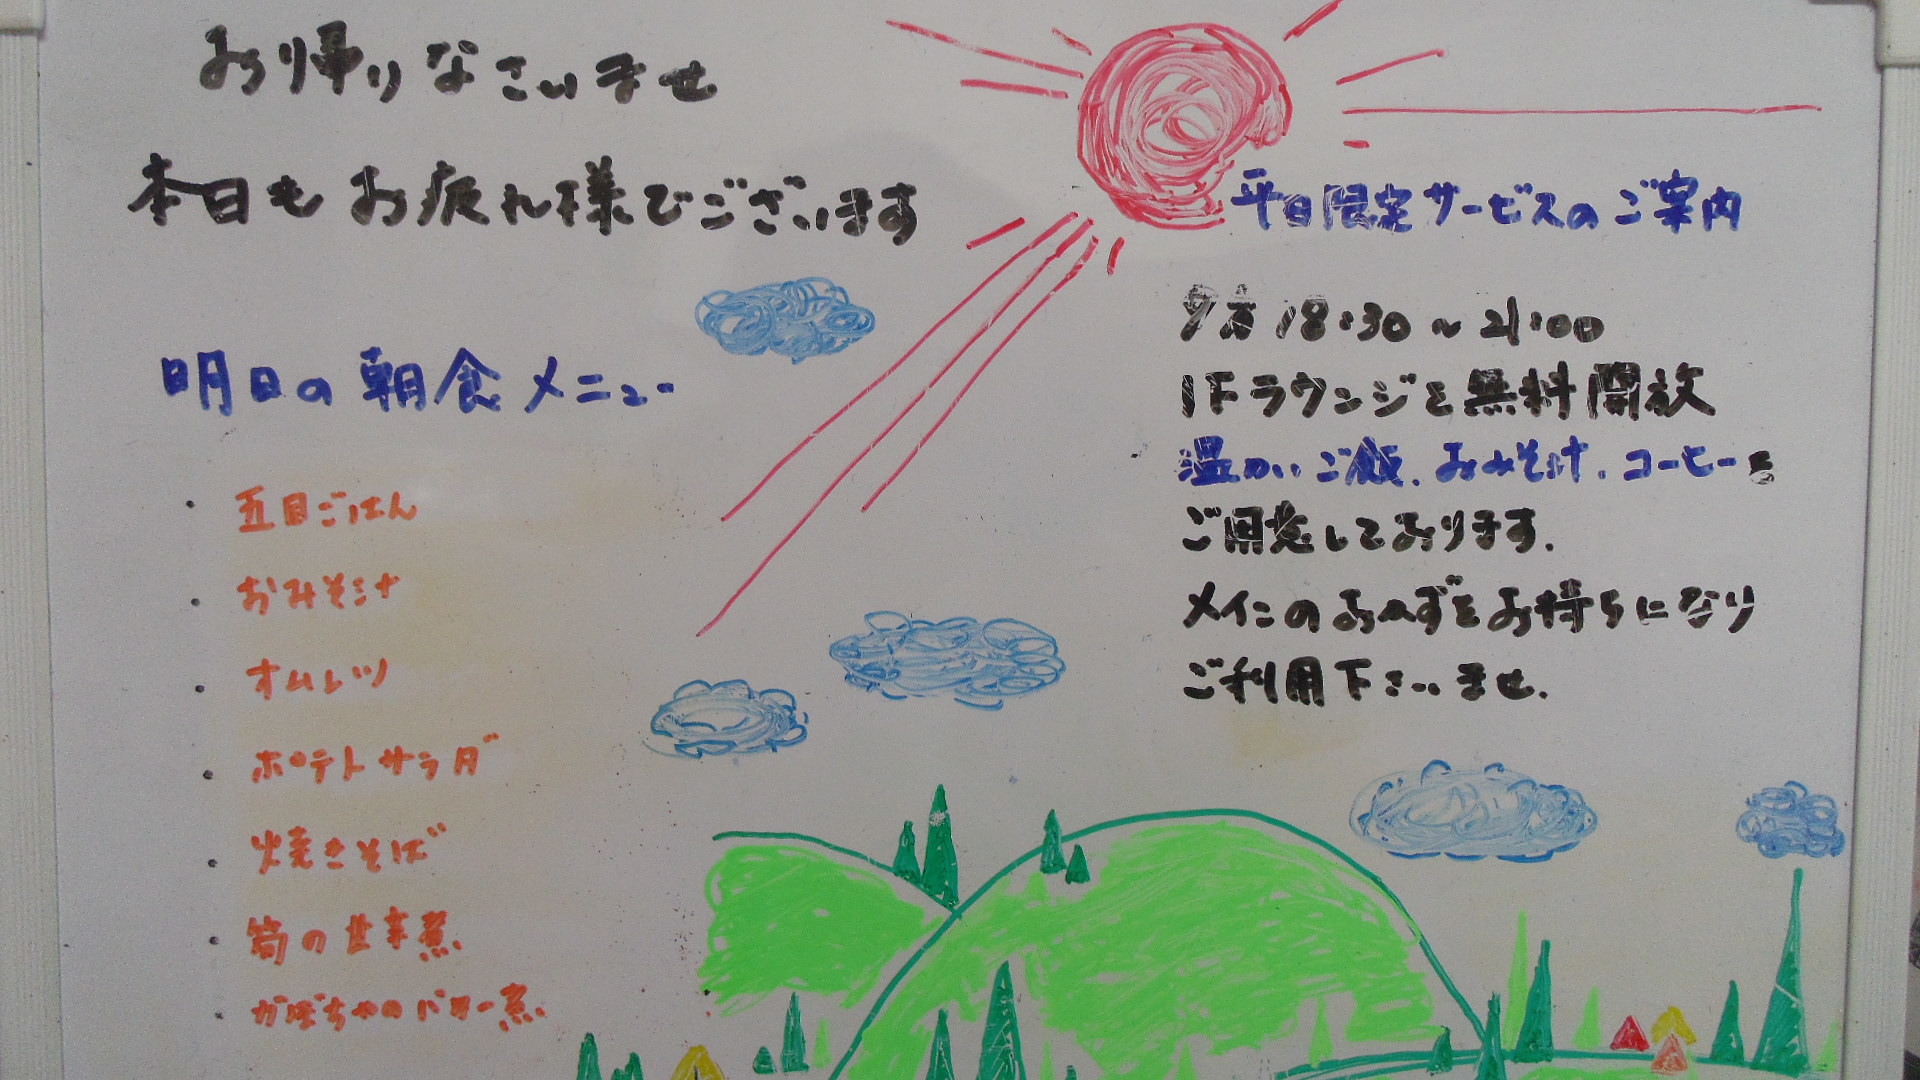 お帰りなさいませ
本日もお疲れ様でございます
明日の朝食メニュー
・五目ごはん
・おみそ汁
・オムレツ
・ポテトサラダ
・焼きそば
・筍の甘辛煮
・かぼちゃのバター煮
平日限定サービスのご案内
夕方18:30～21:00
1Fラウンジを無料開放
温かいご飯、おみそ汁、コーヒーを
ご用意しております。
メインのおかずをお持ちになり
ご利用下さいませ。